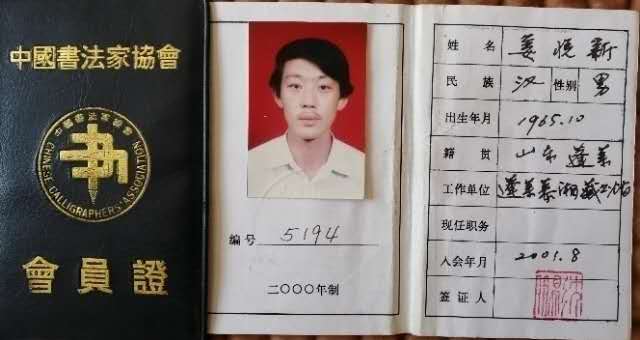 中國書法家協會
中國書法家協會
CHINESE CALLIGRAPHERS' ASSOCIATION
會員證
编号 5194
二〇〇〇年制
姓名 姜悦新
民族 汉 性别 男
出生年月 1965.10
籍贯 山东 蓬莱
工作单位 蓬莱慕湘藏书馆
现任职务
入会年月 2001.8
签证人